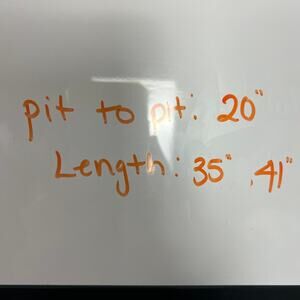 pit to pit: 20"
Length: 35", 41"